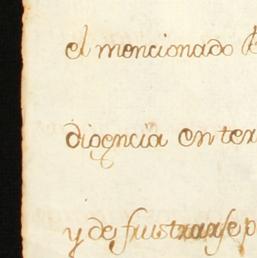 el mencionado
digencia en ter
y de frustrarse p